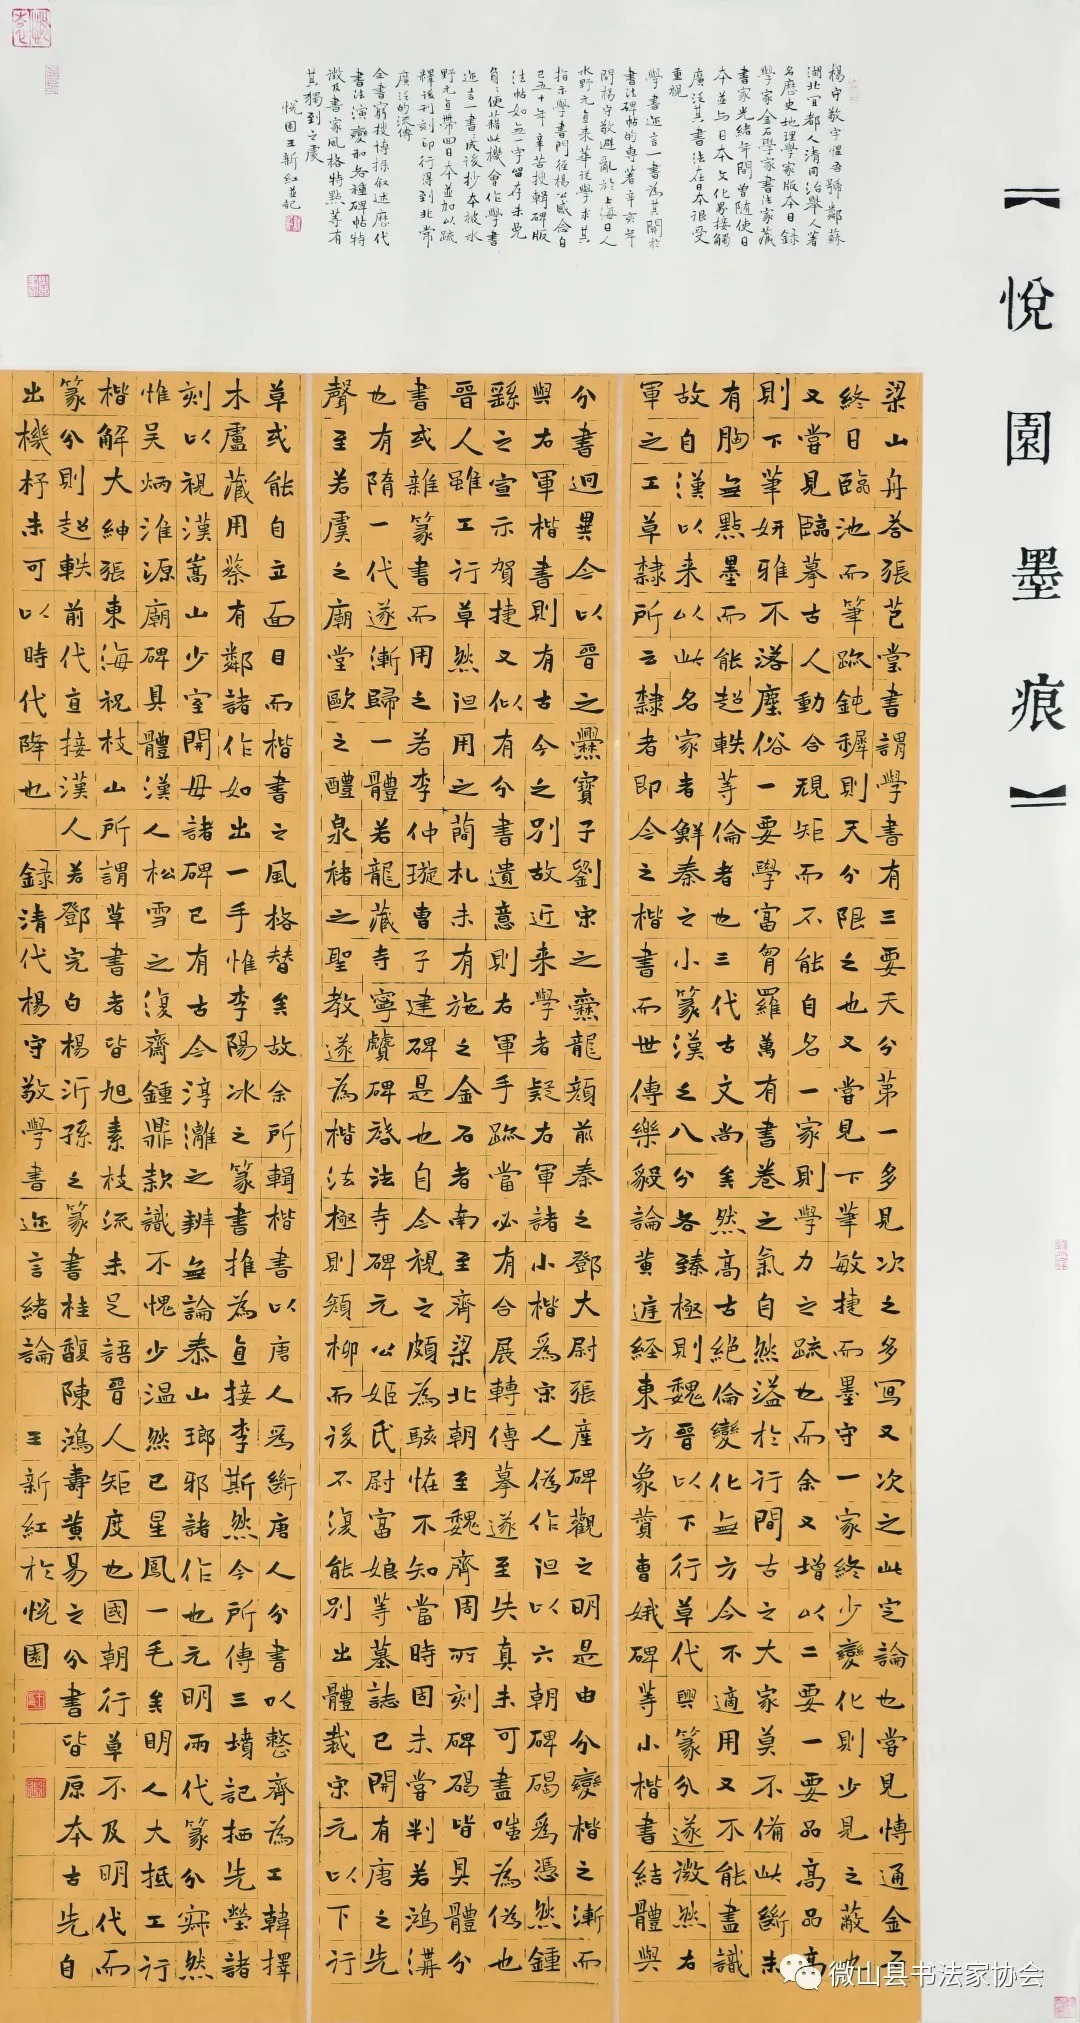 【悅園墨痕】
楊守敬字惺吾號鄰蘇
湖北宜都人清同治舉人著
名歷史地理學家版本目録
學家金石學家書法家藏
書家光緒年間曾随使日
本並与日本文化界接觸
廣泛其書法在日本很受
重視
學書迩言一書為其關於
書法碑帖的專著辛亥年
間楊守敬避亂於上海日人
水野元直来華從學求其
指示學書門徑楊公感念自
己五十年辛苦搜輯碑版
法帖如無一字留存未免
負負便藉此機會作學書
迩言一書成後抄本被水
野元直帶回日本並加以疏
釋後刊刻印行得到非常
廣泛的流傳
全書窮搜博採叙述歷代
書法演變和各種碑帖特
徵及書家風格特點等有
其獨到之處
悅園王新红並記
梁山舟荅張芑堂書謂學書有三要天分第一多見次之多寫又次之此定論也嘗見博通金石
終日臨池而筆跡鈍穉則天分限之也又嘗見下筆敏捷而墨守一家終少變化則少見之蔽也
又嘗見臨摹古人動合規矩而不能自名一家則學力之疏也而余又增以二要一要品高品高
則下筆妍雅不落塵俗一要學富胷羅萬有書卷之氣自然溢於行間古之大家莫不備此斷未
有胸無點墨而能超軼等倫者也三代古文尚矣然高古絕倫變化無方今不適用又不能盡識
故自漢以来以此名家者鮮秦之小篆漢之八分各臻極則魏晉以下行草代興篆分遂微然右
軍之工草隸所云隸者即今之楷書而世傳樂毅論黃庭經東方象贊曹娥碑等小楷書結體與
分書迥異今以晉之爨寶子劉宋之爨龍顏前秦之鄧大尉張產碑觀之明是由分變楷之漸而
與右軍楷書則有古今之別故近来學者疑右軍諸小楷爲宋人僞作但以六朝碑碣爲憑然鍾
繇之宣示賀捷又似有分書遺意則右軍手跡當必有合展轉傳摹遂至失真未可盡嗤為偽也
晉人雖工行草然但用之簡札未有施之金石者南至齊梁北朝至魏齊周所刻碑碣皆具體分
書或雜篆書而用之若李仲璇曹子建碑是也自今視之頗為駭怪不知當時固未嘗判若鴻溝
也有隋一代遂漸歸一體若龍藏寺寧贙碑啓法寺碑元公姬氏尉富娘等墓誌已開有唐之先
聲至若虞之廟堂歐之醴泉褚之聖教遂為楷法極則顏柳而後不復能別出體裁宋元以下行
草或能自立面目而楷書之風格替矣故余所輯楷書以唐人爲斷唐人分書以整齊為工韓擇
木盧藏用蔡有鄰諸作如出一手惟李陽冰之篆書推為直接李斯然今所傳三墳記栖先塋諸
刻以視漢嵩山少室開毋諸碑已有古今淳漓之辨無論泰山瑯邪諸作也元明兩代篆分寂然
惟吳炳淮源廟碑具體漢人松雪之復齋鍾鼎款識不愧少温然已星鳳一毛矣明人大抵工行
楷解大紳張東海祝枝山所謂草書者皆旭素枝流未足語晉人矩度也國朝行草不及明代而
篆分則超軼前代直接漢人若鄧完白楊沂孫之篆書桂馥陳鴻壽黄易之分書皆原本古先自
出機杼未可以時代降也 録清代楊守敬學書迩言緒論 王新红於悅園
微山县书法家协会